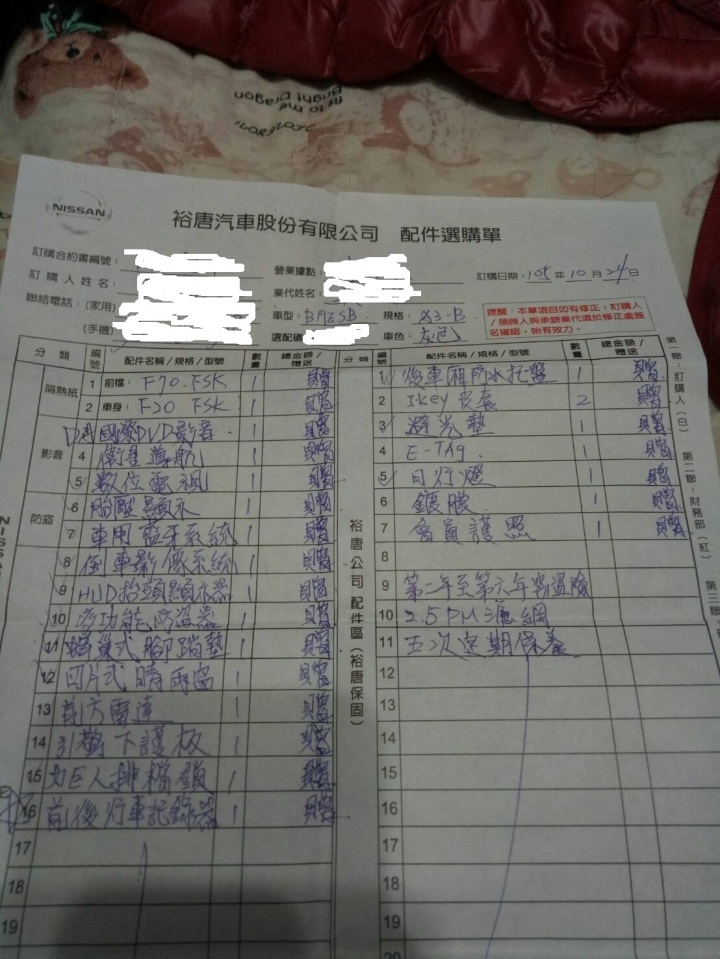 NISSAN
裕唐汽車股份有限公司 配件選購單
訂購合約書編號:
營業據點:
訂購日期:105年10月24日
訂購人姓名:
業代姓名:
聯絡電話:(家用)
車型:
規格:X3-B
提醒:本單項目如有修正,訂購人
/領牌人與承辦業代須於修正處簽
名確認,始有效力。
(手機)
選配碼
車色:
分類 編號 配件名稱/規格/型號 數量 總金額/贈送
隔熱紙
1 前檔:F70.FSK 1 贈
2 車身:F20 FSK 1 贈
影音
國際DVD影音 1 贈
4 衛星導航 1 贈
5 數位電視 1 贈
防盜
6 胎壓顯示 1 贈
7 車用藍牙系統 1 贈
8 倒車影像系統 1 贈
9 HUD抬頭顯示器 1 贈
10 多功能防盜器 1 贈
11 蜂巢式腳踏墊 1 贈
12 四片式晴雨窗 1 贈
13 前方雷達 1 贈
14 引擎下護板 1 贈
15 力巨人排檔鎖 1 贈
16 前後行車記錄器 1 贈
17
18
19
分類 編號 配件名稱/規格/型號 數量 總金額/贈送
裕唐公司配件區(裕唐保固)
1 後車廂防水托盤 1 贈
2 I-key皮套 2 贈
3 避光墊 1 贈
4 E-TAg 1 贈
5 日行燈 1 贈
6 鍍膜 1 贈
7 會員護照 1 贈
8
9 第二年至第六年竊盜險
10 2.5PM濾網
11 五次定期保養
12
13
14
15
16
17
18
19
20
第一聯:訂購人(白)
第二聯:財務部(紅)
第三聯